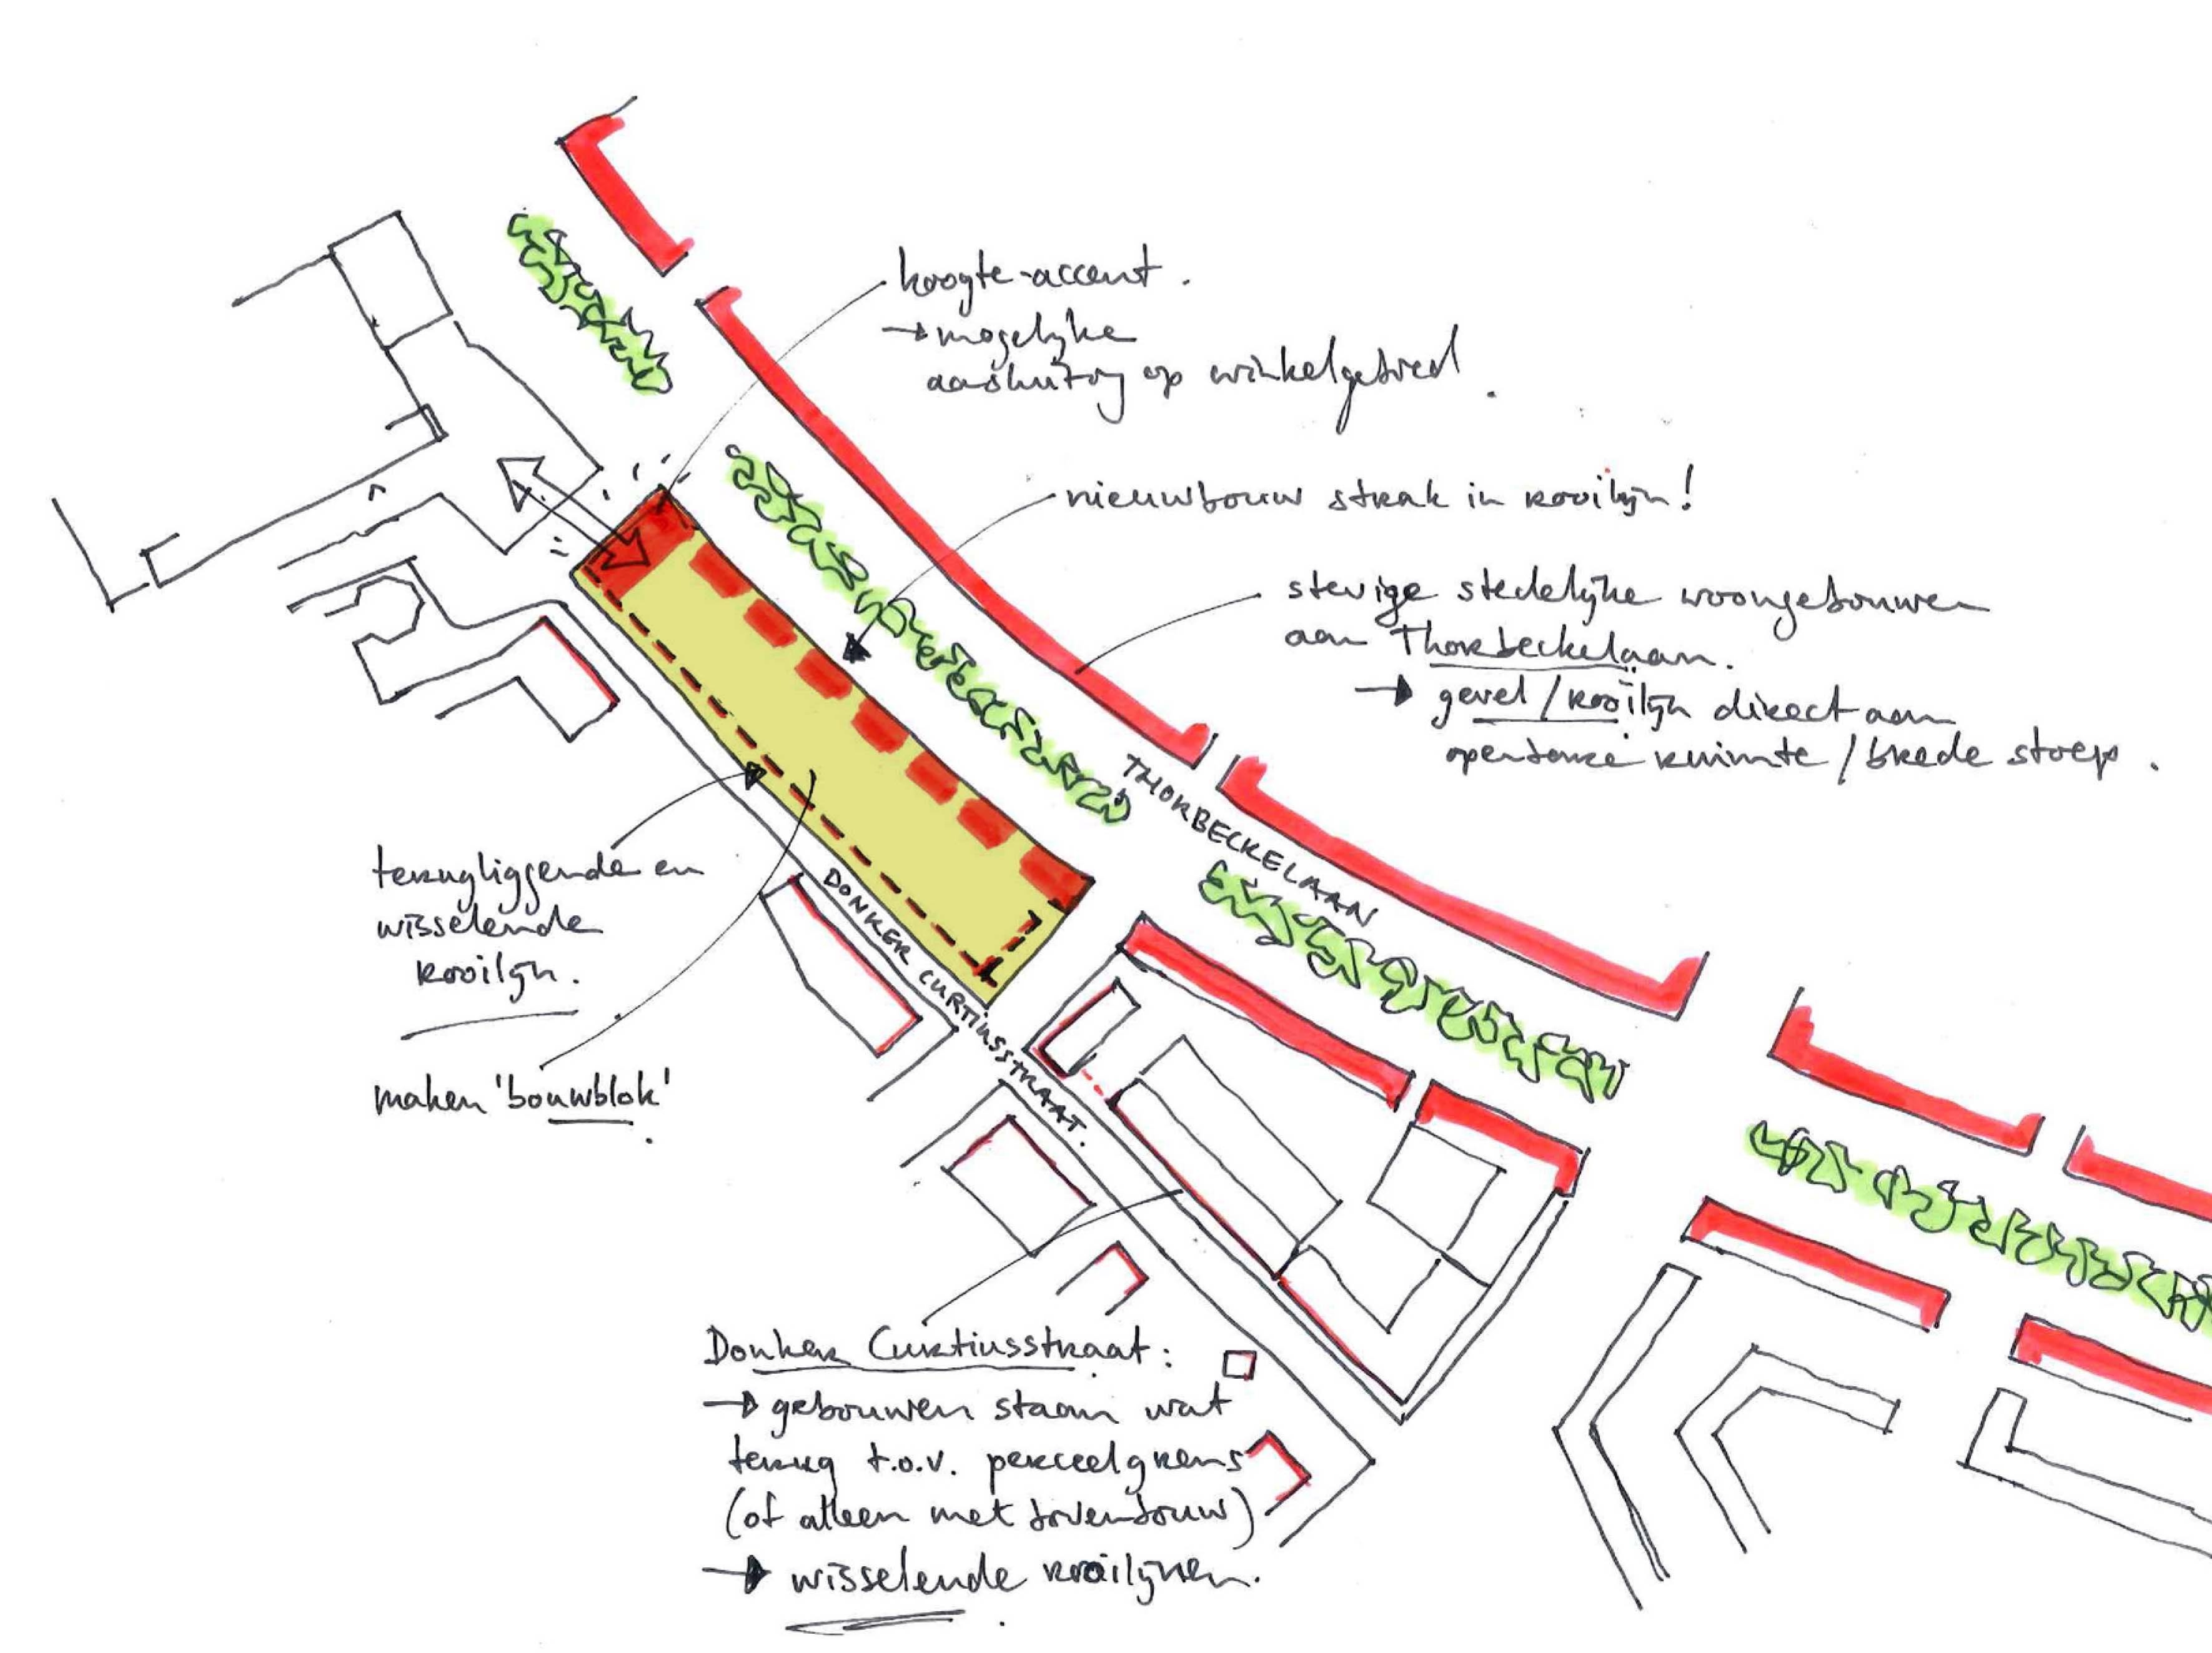 hoogte-accent.
→ mogelijke
aansluiting op winkelgebied.
nieuwbouw strak in rooilijn!
stevige stedelijke woongebouwen
aan Thorbeckelaan.
→ gevel / rooilijn direct aan
openbare ruimte / brede stoep.
THORBECKELAAN
terugliggende en
wisselende
rooilijn.
DONKER CURTIUSSTRAAT.
maken 'bouwblok'.
Donker Curtiusstraat:
→ gebouwen staan wat
terug t.o.v. perceelgrens
(of alleen met bovenbouw)
→ wisselende rooilijnen.